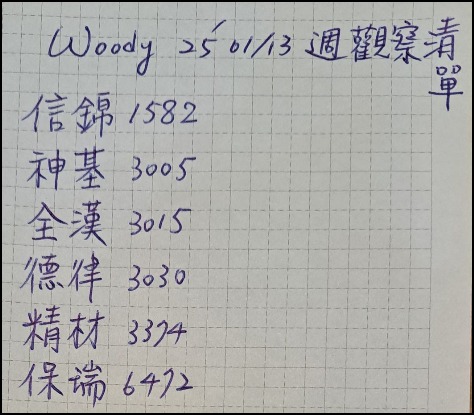 Woody 25' 01/13 週觀察清單
信錦 1582
神基 3005
全漢 3015
德律 3030
精材 3374
保瑞 6472